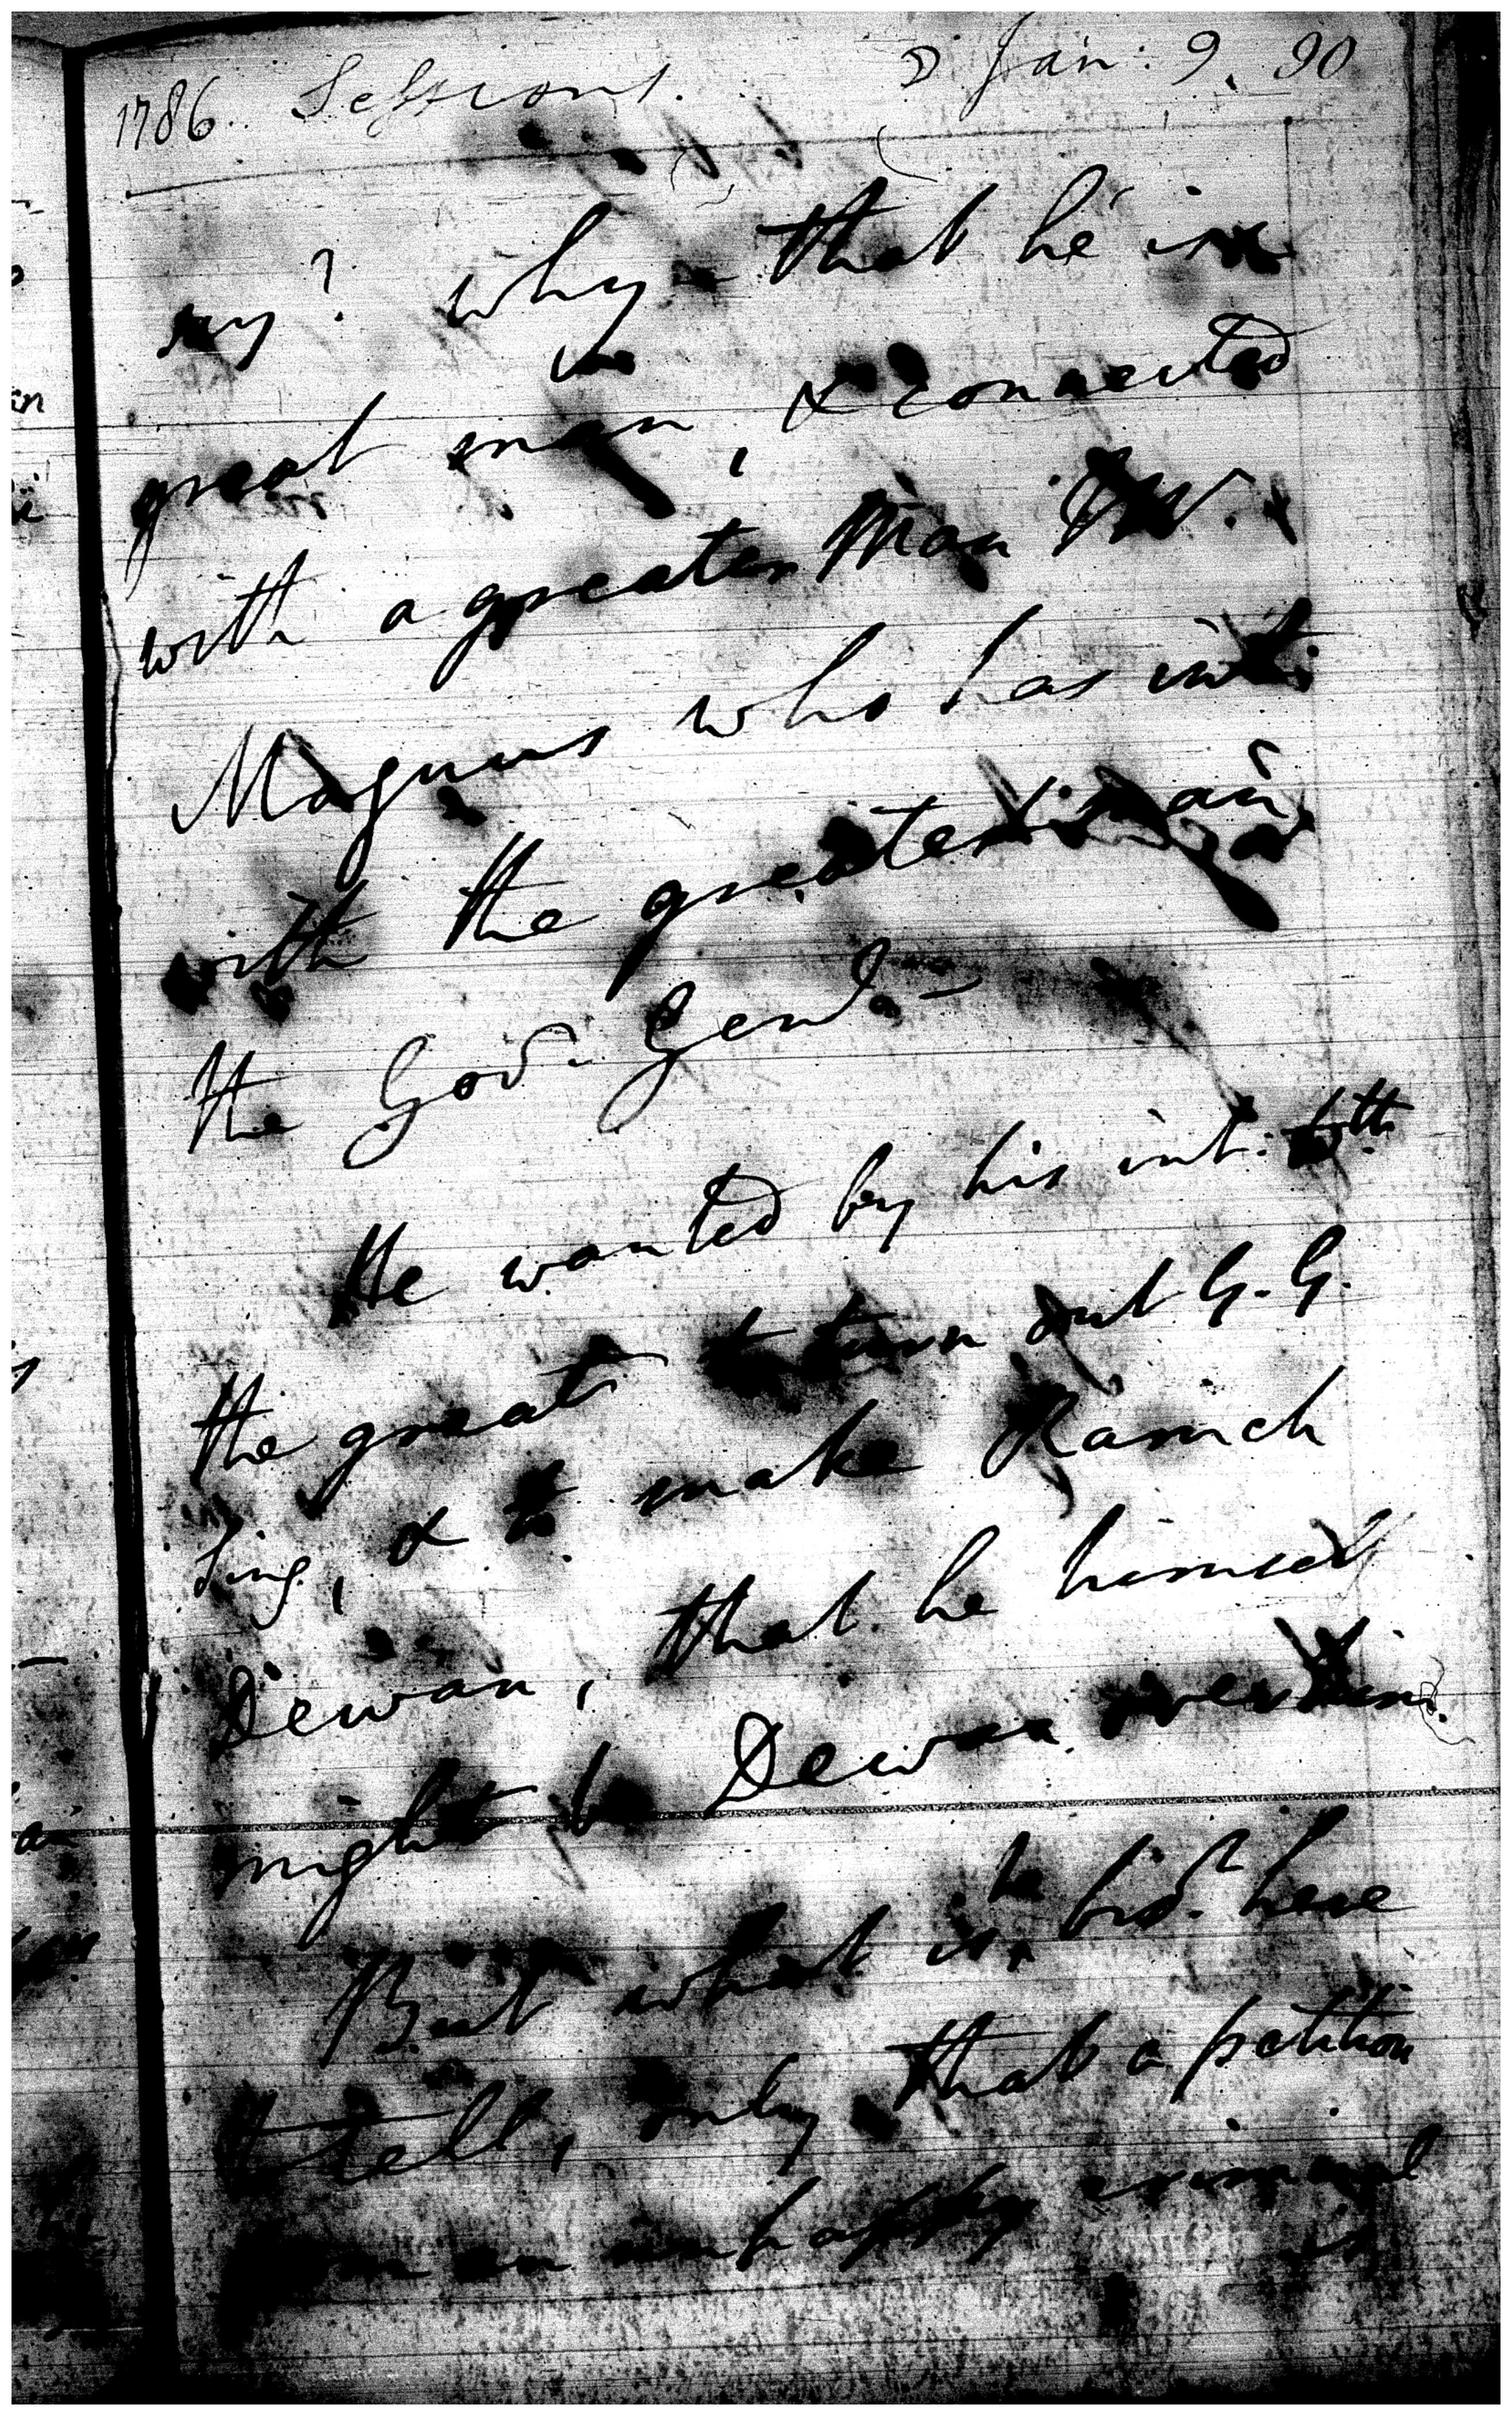 1786. Sessions. ☽ Jan: 9. 90
say? why that he is a
great man, & connected
with a greater Man W.
Magnus who has int:
with the greatest man
the Gov.r Genl. —
He wanted by his int: with
the great to turn out G. G.
Sing, & to make Ramch
Dewan, that he himself
might be Dewan over him.
But what is the bro.r here
to tell, only that a petition
from an unhappy criminal
is